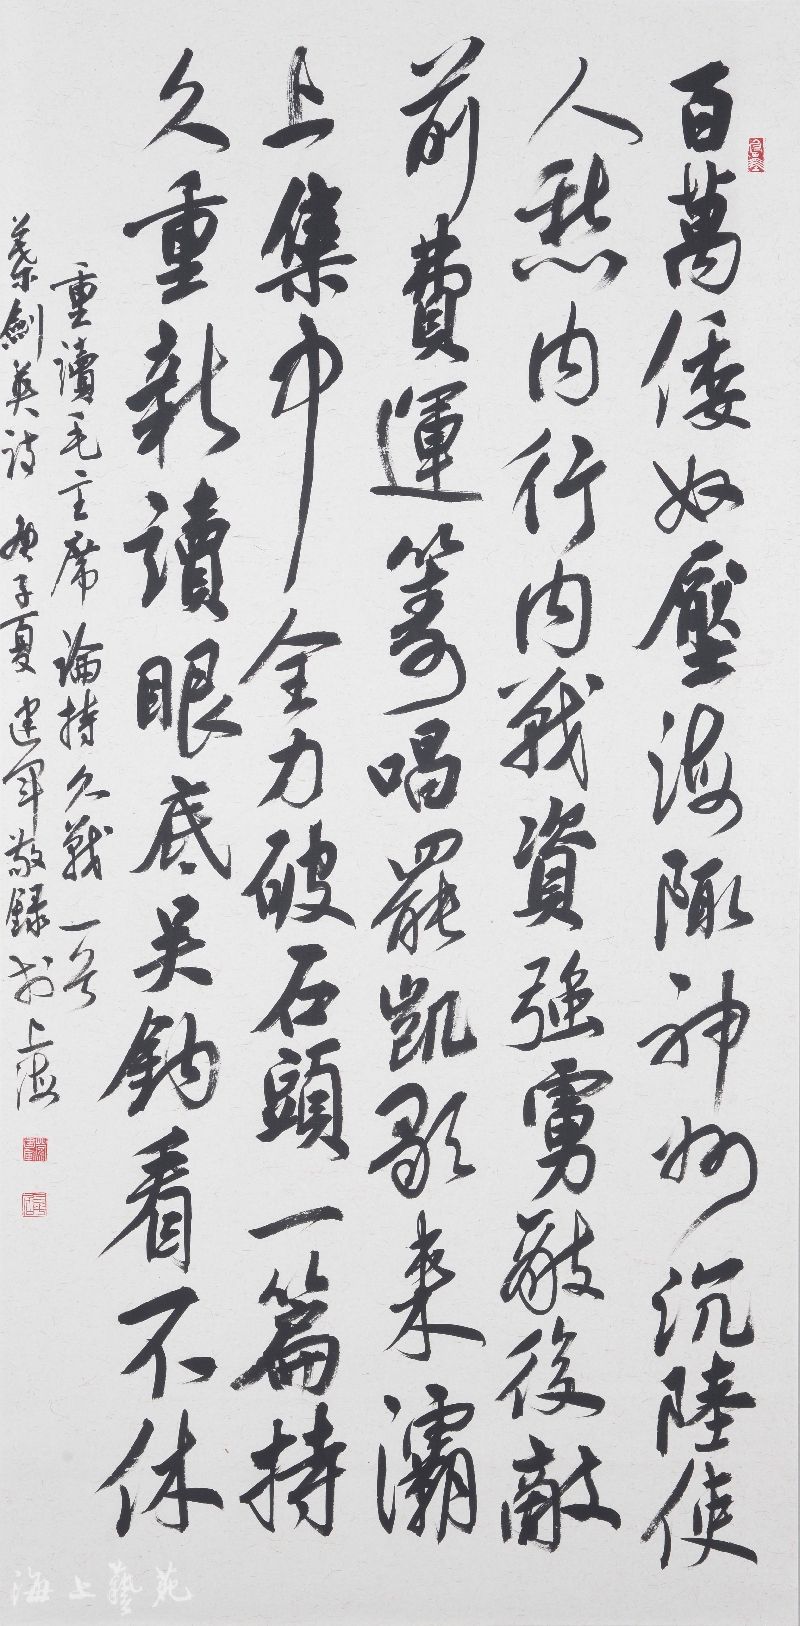 百萬倭奴壓海陬神州沉陸使
人愁内行内戰資強虜敵後敵
前費運籌唱罷凱歌来灞
上集中全力破石頭一篇持
久重新讀眼底吴鈎看不休
重讀毛主席論持久戰一首
葉劍英詩庚子夏建軍敬録於上海
海上藝苑